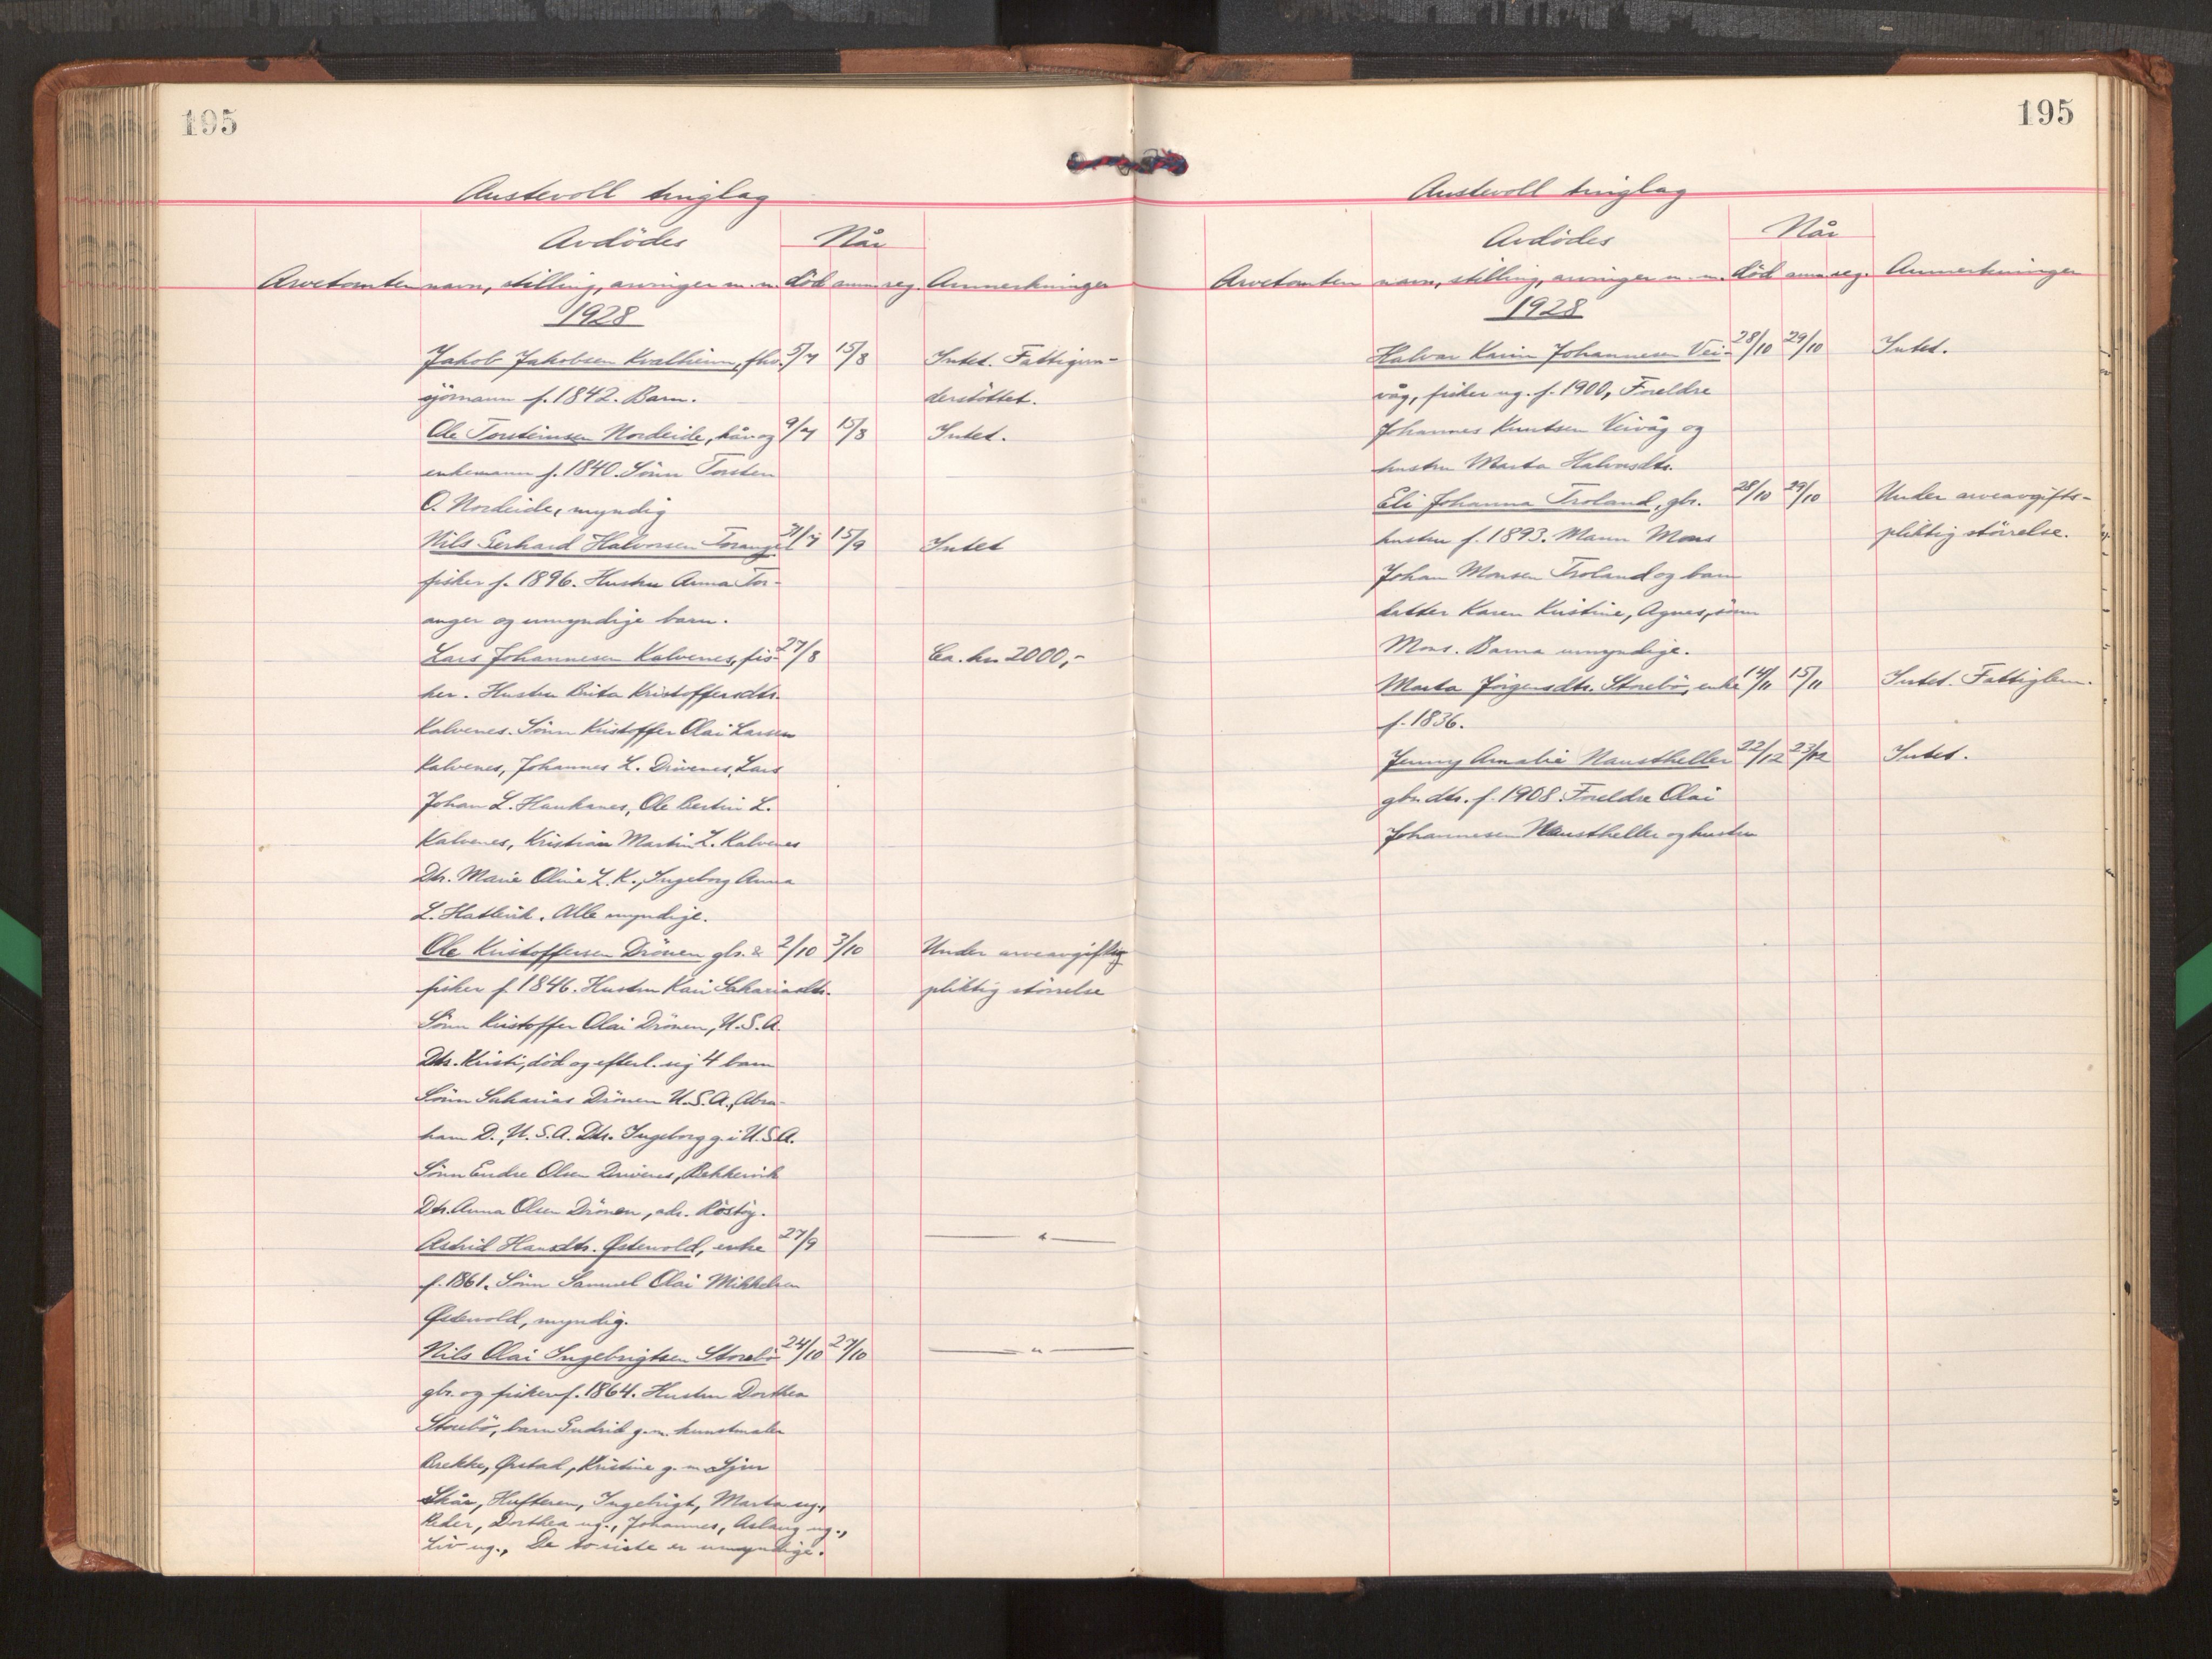 195
Austevoll tinglag
Avdödes Når
Arvetomten navn, stilling, arvinger m. m. död anm. reg. Anmerkninger
1928
Jakob Jakobsen Kvalheim, fhv. 5/7 15/8 Intet. Fattigun-
sjömann f. 1842. Barn. derstöttet.
Ole Torsteinsen Nordeide, kårog 9/7 15/8 Intet.
enkemann f. 1840. Sönn Torsten
O. Nordeide, myndig
Nils Gerhard Halvorsen Torangel 31/7 15/9 Intet
fisker f. 1896. Hustru Anna Tor-
anger og umyndige barn.
Lars Johannesen Kalvenes, fis- 27/8 Ca. kr. 2000,-
ker. Hustru Brita Kristoffersdtr.
Kalvenes. Sönn Kristoffer Olai Larsen
Kalvenes, Johannes L. Drivenes, Lars
Johan L. Haukanes, Ole Bertin L.
Kalvenes, Kristian Martin L. Kalvenes
Dtr. Marie Oline L. K., Ingeborg Anna
L. Hatlevik. Alle myndige.
Ole Kristoffersen Drönen gbr. & 2/10 3/10 Under arveavgiftig
fisker f. 1846. Hustru Kari Sakariasdtr. pliktig störrelse
Sönn Kristoffer Olai Drönen, U.S.A.
Dtr. Kristi, död og efterl. sig 4 barn
Sönn Sakarias Drönen U.S.A., Abra-
ham D., U.S.A. Dtr. Ingeborg g. i U.S.A.
Sönn Endre Olsen Drivenes, Bekkervik
Dtr. Anna Olsen Drönen, adr. Röstöy.
Astrid Hansdtr. Østervold, enke 27/9 — " —
f. 1861. Sönn Samuel Olai Mikkelsen
Østervold, myndig.
Nils Olai Ingebrigtsen Storebö 24/10 27/10 — " —
gbr. og fisker f. 1864. Hustru Dorthea
Storebö, barn Gudrid g.m. kunstmaler
Brekke, Ørstad, Kristine g. m. Sjur
Skår, Hufteren, Ingebrigt, Marta ug.,
Peder, Dorthea ug., Johannes, Aslaug ug.,
Liv ug., De to siste er umyndige.
195
Austevoll tinglag
Avdödes Når
Arvetomten navn, stilling, arvinger m. m. död anm. reg. Anmerkninger
1928
Halvar Karim Johannesen Vei- 28/10 29/10 Intet.
våg, fisker ug. f. 1900, Foreldre
Johannes Knutsen Veivåg og
hustru Marta Halvorsdtr.
Eli Johanna Troland, gbr. 28/10 29/10 Under arveavgifts-
hustru f. 1893. Mann Mons pliktig störrelse.
Johan Monsen Troland og barn
datter Karen Kristine, Agnes, sönn
Mons. Barna umyndige.
Marta Jörgensdtr. Storebö, enke 14/11 15/11 Intet. Fattiglem.
f. 1836.
Jenny Amalie Naustheller 22/12 23/12 Intet.
gbr. dtr. f. 1908. Foreldre Olai
Johannesen Naustheller og hustru